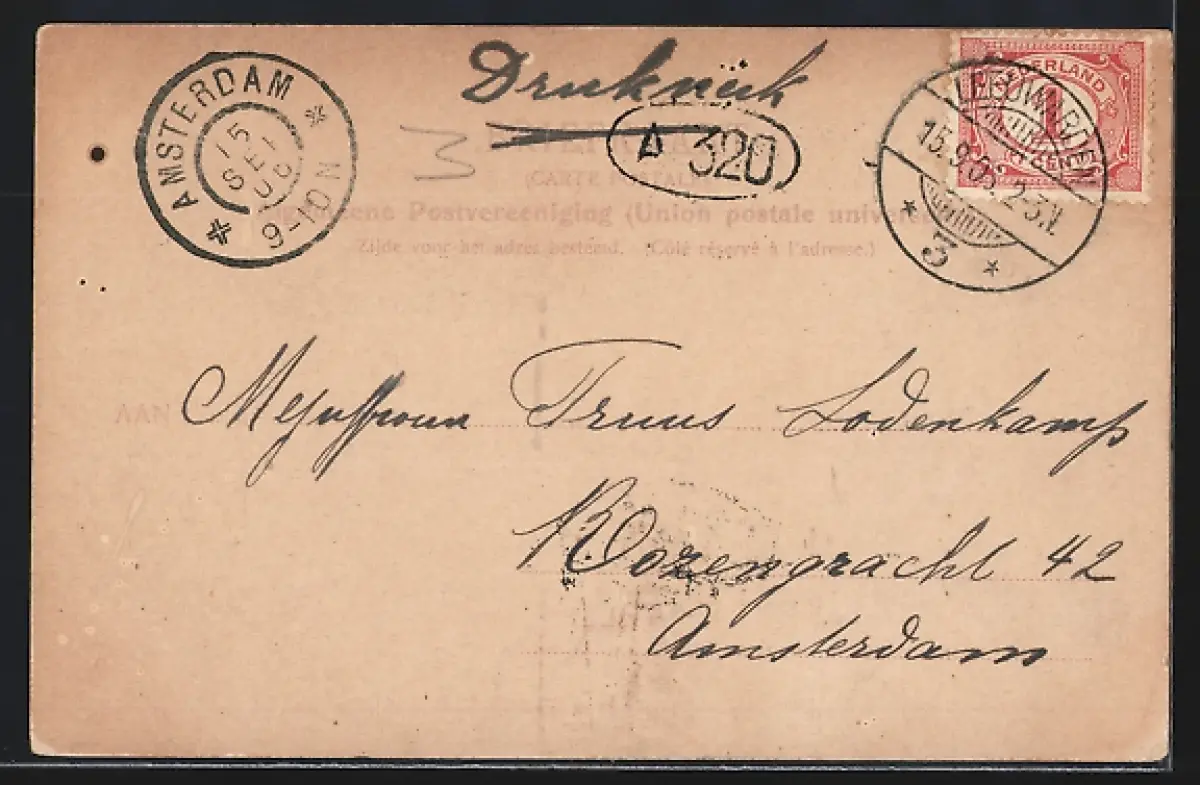 Drukwerk
AMSTERDAM
15
SEP
06
9-10N
A 320
NEDERLAND
1
CENT
LEEUWARDEN
15.9.06 2-3N
3
(CARTE POSTALE)
Algemeene Postvereeniging (Union postale universelle)
Zijde voor het adres bestemd. (Côté réservé à l'adresse.)
AAN Mejuffrouw Truus Lodenkamp
Rozengracht 42
Amsterdam